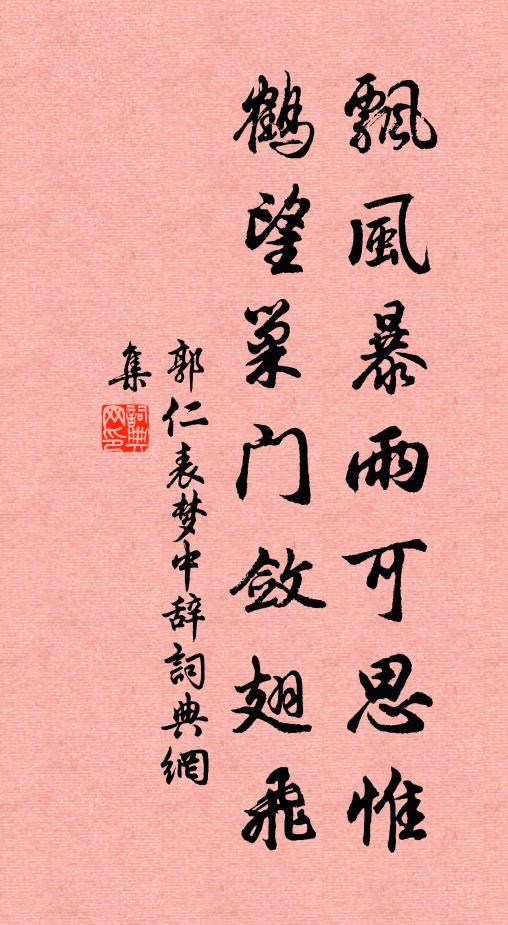 飄風暴雨可思惟
鶴望巢门斂翅飛
郭仁表梦中辞詞典網
集
詞典
网印